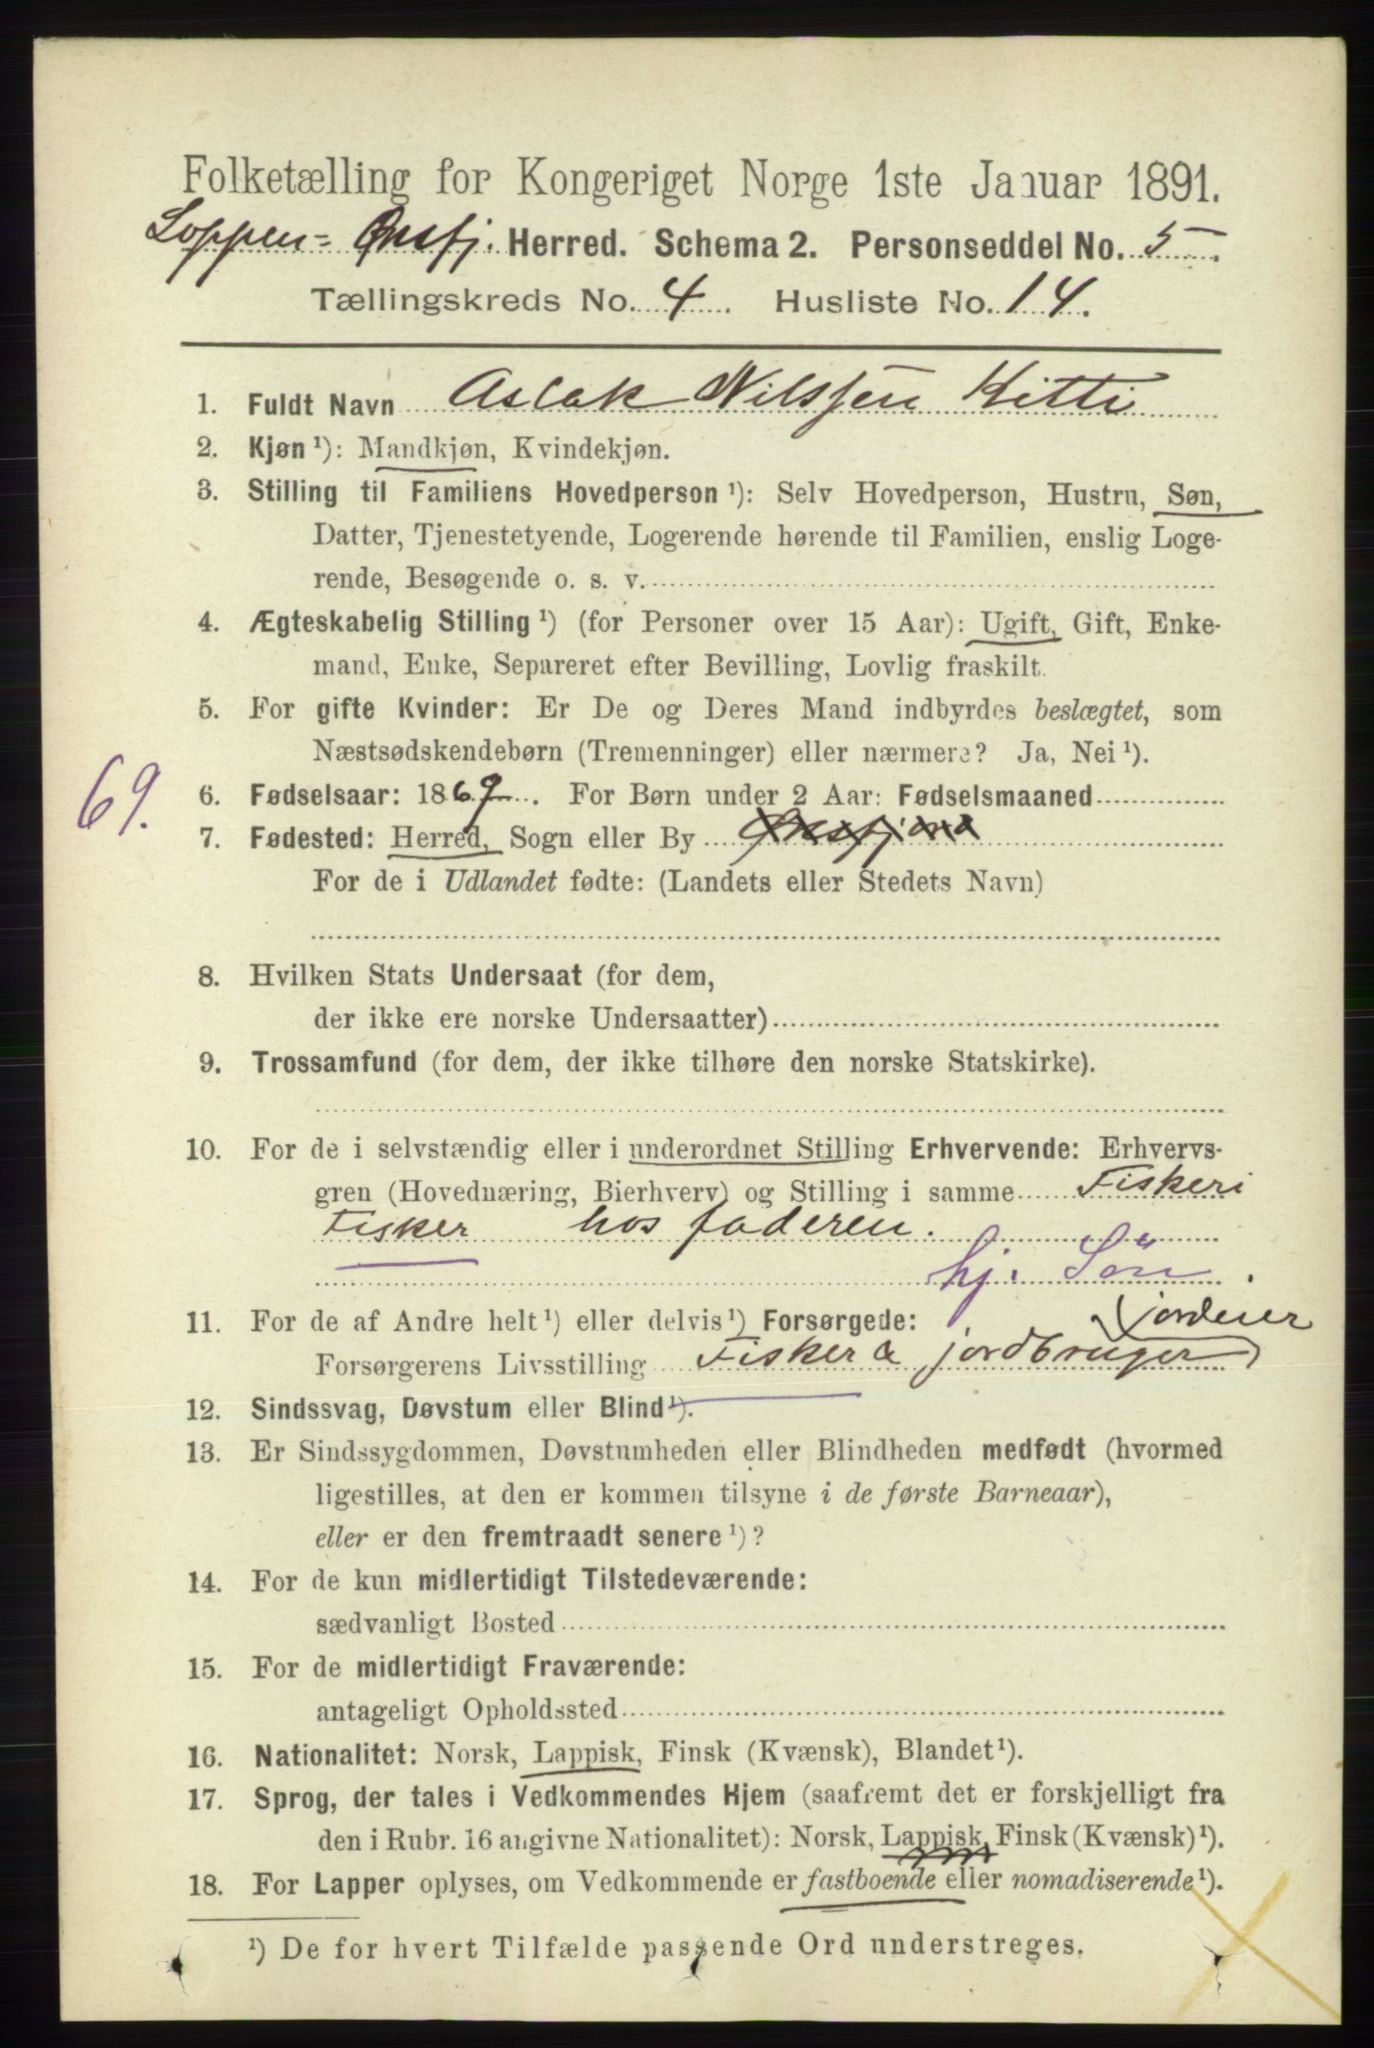 Folketælling for Kongeriget Norge 1ste Januar 1891.
Loppen= Øxfj. Herred. Schema 2. Personseddel No. 5
Tællingskreds No. 4. Husliste No. 14.
1. Fuldt Navn Aslak Nilssen Kitti
2. Kjøn ¹): Mandkjøn, Kvindekjøn.
3. Stilling til Familiens Hovedperson ¹): Selv Hovedperson, Hustru, Søn,
Datter, Tjenestetyende, Logerende hørende til Familien, enslig Loge-
rende, Besøgende o. s. v.
4. Ægteskabelig Stilling ¹) (for Personer over 15 Aar): Ugift, Gift, Enke-
mand, Enke, Separeret efter Bevilling, Lovlig fraskilt.
5. For gifte Kvinder: Er De og Deres Mand indbyrdes beslægtet, som
Næstsødskendebørn (Tremenninger) eller nærmere? Ja, Nei ¹).
69.
6. Fødselsaar: 1869. For Børn under 2 Aar: Fødselsmaaned
7. Fødested: Herred, Sogn eller By Øxfjord
For de i Udlandet fødte: (Landets eller Stedets Navn)
8. Hvilken Stats Undersaat (for dem,
der ikke ere norske Undersaatter)
9. Trossamfund (for dem, der ikke tilhøre den norske Statskirke).
10. For de i selvstændig eller i underordnet Stilling Erhvervende: Erhvervs-
gren (Hovednæring, Bierhverv) og Stilling i samme Fiskeri
Fisker hos faderen.
hj. Sön.
11. For de af Andre helt ¹) eller delvis ¹) Forsørgede: (jordeier
Forsørgerens Livsstilling Fisker & jordbruger)
12. Sindssvag, Døvstum eller Blind ¹).
13. Er Sindssygdommen, Døvstumheden eller Blindheden medfødt (hvormed
ligestilles, at den er kommen tilsyne i de første Barneaar),
eller er den fremtraadt senere ¹)?
14. For de kun midlertidigt Tilstedeværende:
sædvanligt Bosted
15. For de midlertidigt Fraværende:
antageligt Opholdssted
16. Nationalitet: Norsk, Lappisk, Finsk (Kvænsk), Blandet ¹).
17. Sprog, der tales i Vedkommendes Hjem (saafremt det er forskjelligt fra
den i Rubr. 16 angivne Nationalitet): Norsk, Lappisk, Finsk (Kvænsk) ¹).
18. For Lapper oplyses, om Vedkommende er fastboende eller nomadiserende ¹).
¹) De for hvert Tilfælde passende Ord understreges.